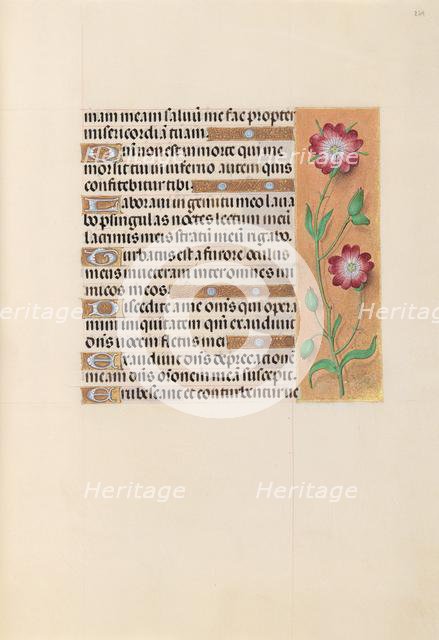 mam meam salvū me fac propter
misericordiā tuam.
Qm̄ non est in morte qui me
mor sit tui in inferno autem quis
confitebitur tibi.
Laboravi in gemitu meo lava
bo p singulas noctes lectum meū
lacrimis meis stratū meū rigabo.
Turbatus est a furore oculus
meus inveteravi inter omnes ini
micos meos.
Discedite a me om̄s qui opera
mini iniquitatem qm̄ exaudivit
dn̄s vocem fletus mei
Exaudivit dn̄s deprecationē
meam dn̄s orōnem meā suscepit.
Erubescant et conturbentur ve
Heritage
Heritage
Heritage
Heritage
Heritage
Heritage